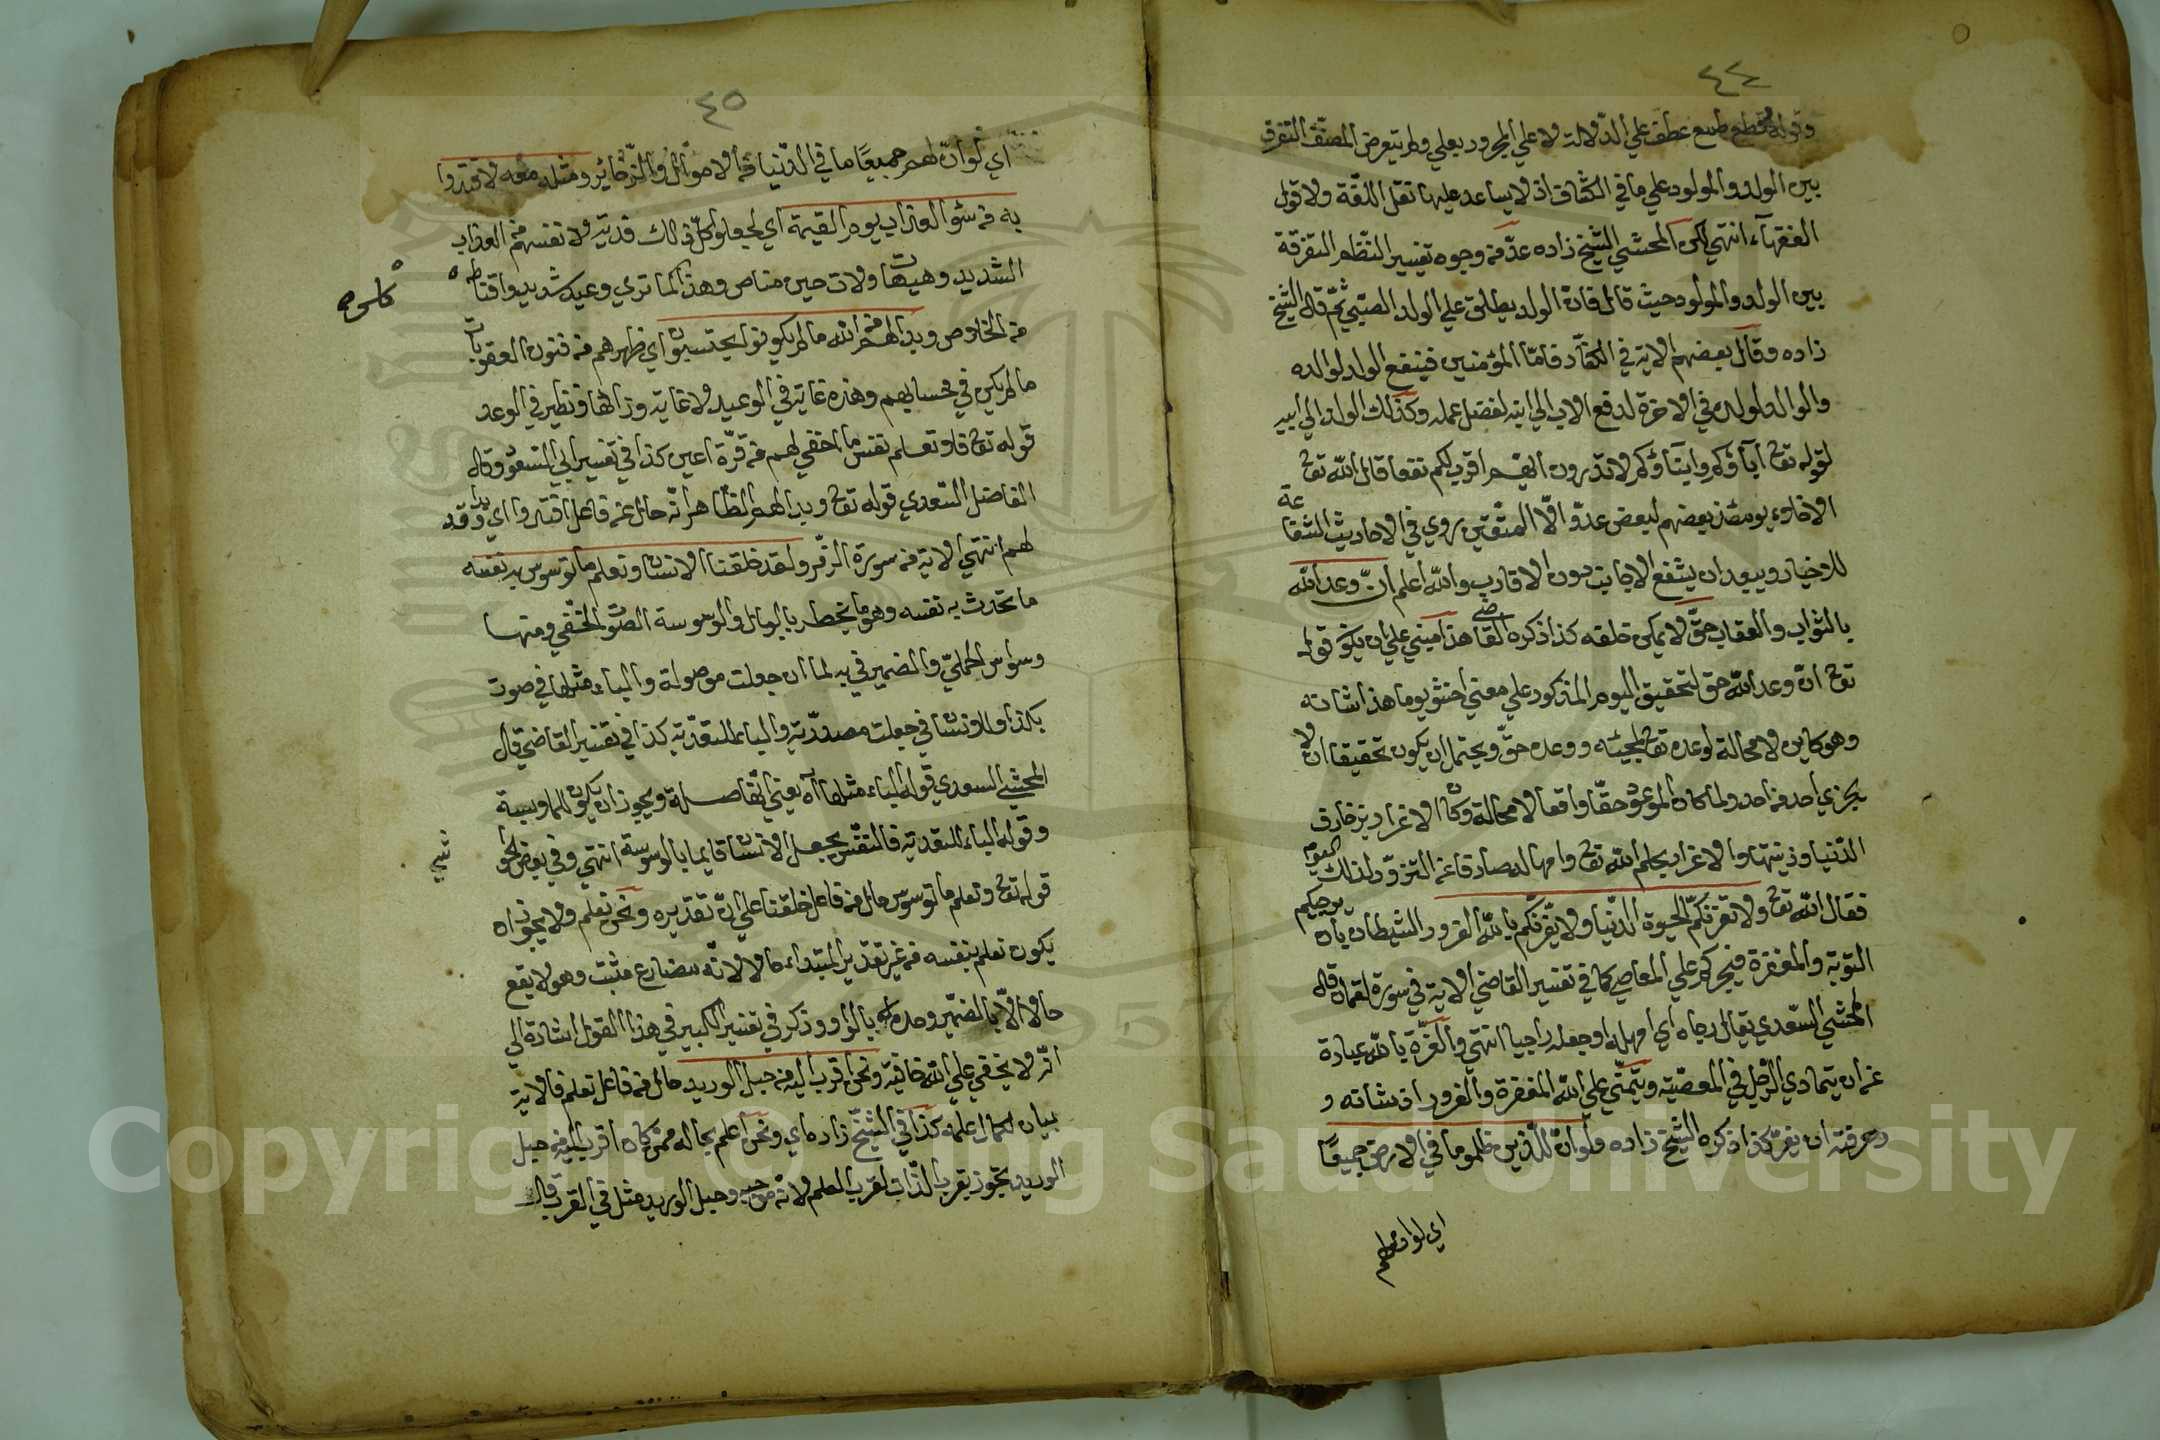 ٤٤
وقوله وقطع طمع عطف علي الدلالة لا علي المجرور بعلي ولم يتعرض المصنف التفرقة
بين الولد والمولود علي ما في الكشاف اذ لا يساعد عليها نقل اللغة ولا قول
الفقهاء انتهي لكن المحشي الشيخ زاده عد من وجوه تفسير النظم التفرقة
بين الولد والمولود حيث قال فان الولد يطلق علي الولد الصلبي ثم قال الشيخ
زاده وقال بعضهم الاية في الكفار فاما المؤمنين فينفع الولد لوالده
والوالد لولده في الاخرة لدفع الاب الي ابنه لفضل عمله وكذلك الولد الي ابيه
لقوله تع آباؤكم وابناؤكم لا تدرون ايهم اقرب لكم نفعا قال الله تع
الاخلاء يومئذ بعضهم لبعض عدو الا المتقين روي في الاحاديث الشفاعة
للاخيار ويبعد ان يشفع الاجانب دون الاقارب والله اعلم ان وعد الله
بالثواب والعقاب حق لا يمكن خلفه كذا ذكره القاضي هذا مبني علي ان يكون قوله
تع ان وعد الله حق لتحقيق اليوم المذكور علي معني اخشو يوما هذا شانه
وهو كاين لا محالة لوعده تع بمجيئه ووعده حق ويحتمل ان يكون تحقيقا ان لا
يجزي احد من احد ولما كان الموعود حقا واقعا لا محالة وكان الاغرار بزخارف
الدنيا وزينتها والاغرار بحلم الله تع وامهاله صادقا عن التزود لذلك اليوم
فقال الله تع ولا تغرنكم الحيوة الدنيا ولا يغرنكم بالله الغرور الشيطان بان يرجيكم
التوبة والمغفرة فيجركم علي المعاصي كما في تفسير القاضي الاية في سورة لقمان قال
المحشي السعدي يقال رجاه اي امهله او جعله راجيا انتهي والغرة بالله عبارة
عن ان يتمادي الرجل في المعصية ويتمني علي الله المغفرة والغرور اذ شانه و
دعرفته ان يغر كذا ذكره الشيخ زاده ولو ان للذين ظلموا ما في الارض جميعا
اي لو ان لهم
٤٥
اي لو ان لهم جميعا ما في الدنيا من الاموال والذخائر ومثله معه لافتدوا
به من سوء العذاب يوم القيمة اي لجعلوا كل ذلك فدية لانفسهم من العذاب
الشديد وهيهات ولات حين مناص وهذا كما تري وعيد شديد واقناط
من الخلاص وبدا لهم من الله ما لم يكونوا يحتسبون اي ظهر لهم من فنون العقوبات
ما لم يكن في حسابهم وهذه غاية في الوعيد لا غاية وراءها ونظيره في الوعد
قوله تع فلا تعلم نفس ما اخفي لهم من قرة اعين كذا في تفسير ابي السعود وقال
الفاضل السعدي قوله تع وبدا لهم الظاهر انه حال من فاعل افتدوا اي وقد بدا
لهم انتهي الاية من سورة الزمر ولقد خلقنا الانسان ونعلم ما توسوس به نفسه
ما تحدث به نفسه وهو ما يخطر بالبال والوسوسة الصوت الخفي ومنها
وسواس الحلي والضمير في به لما ان جعلت موصولة والباء مثلها في صوت
بكذا وللانسان ان جعلت مصدرية والباء للتعدية كذا في تفسير القاضي قال
المحشي السعدي قوله الباء مثلها اه يعني انها صلة ويجوز ان يكون للملابسة
وقوله الباء للتعدية فالنفس يجعل الانسان قايما بالوسوسة انتهي وفي بعض الحو
قوله تع ونعلم ما توسوس حال من فاعل خلقنا علي ان تقديره ونحن نعلم ولا يجوز ان
يكون نعلم بنفسه من غير تقدير المبتداء حالا لانه مضارع مثبت وهو لا يقع
حالا الا بالضمير وحده لا بالواو وذكر في تفسير الكبير في هذا القول اشارة الي
انه لا يخفي علي الله خافية ونحن اقرب اليه من حبل الوريد حال من فاعل نعلم فالاية
بيان لكمال علمه كذا في الشيخ زاده اي ونحن اعلم بحاله ممن كان اقرب اليه من حبل
الوريد تجوز بقرب الذات لقرب العلم لانه موجبه وحبل الوريد مثل في القرب قال
Copyright © King Saud University
1957